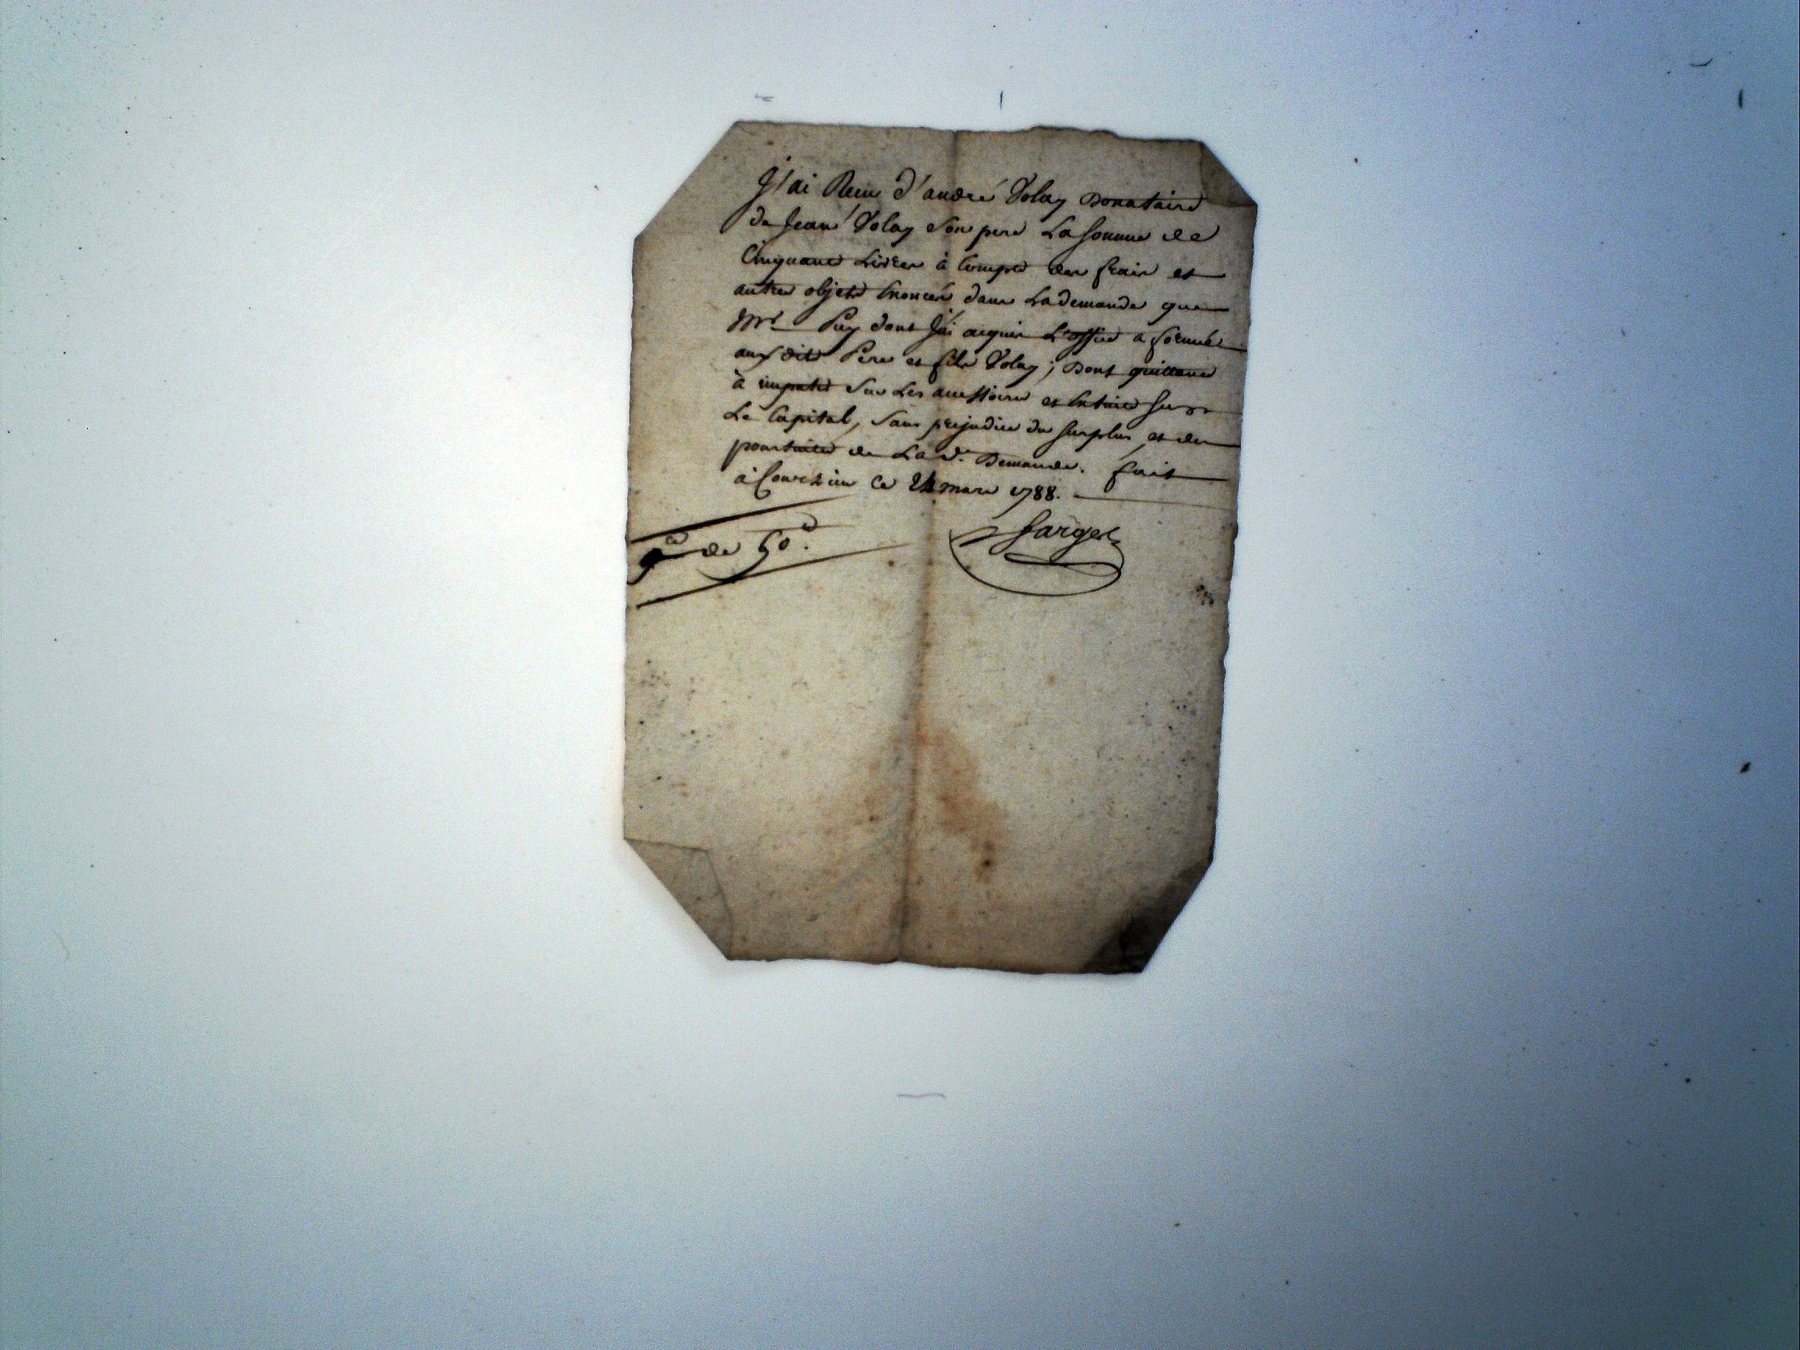 J'ai Recu d'andré Volay Donataire
de Jean Volay Son pere La Somme de
Cinquante Livres à Compte des frais et
autre objets Enoncés dans La demande que
Mre Puy dont J'ai acquis L'office a formée
aux dits Pere et fils Volay; Dont quittance
à imputer Sur Les accessoires et Ensuite Sur
Le Capital, Sans prejudice du Surplus, et des
poursuites de La d. Demande. Fait
à ce 24 mars 1788.
qce de 50
Farges